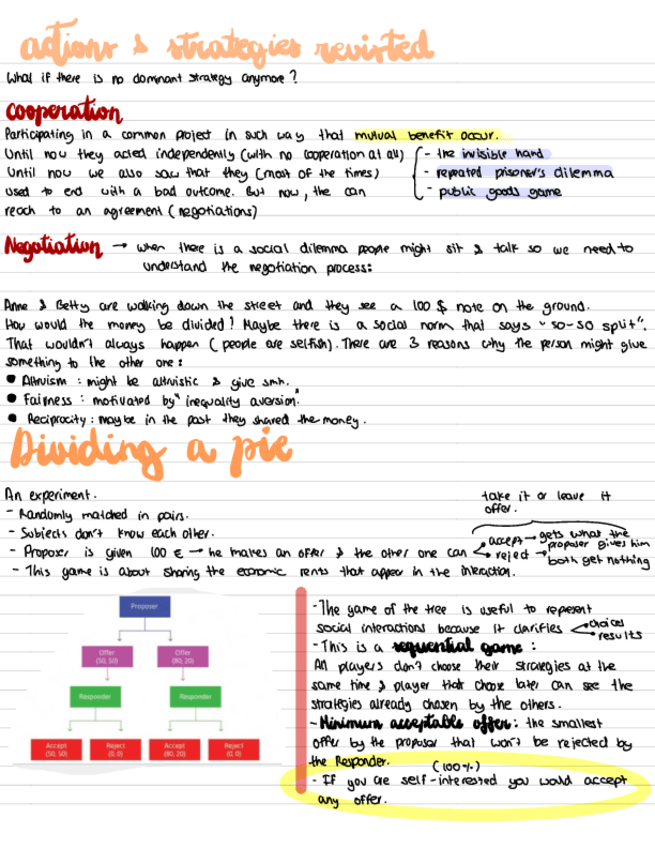 actions & strategies revisted
What if there is no dominant strategy anymore?
Cooperation
Participating in a common project in such way that mutual benefit occur.
Until now they acted independently (with no cooperation at all)
Until now we also saw that they (most of the times)
used to end with a bad outcome. But now, the can
reach to an agreement (negotiations)
- the invisible hand
- repeated prisoner's dilemma
- public goods game
Negotiation → when there is a social dilemma people might sit & talk so we need to
understand the negotiation process:
Anne & Betty are walking down the street and they see a 100 $ note on the ground.
How would the money be divided? Maybe there is a social norm that says "50-50 split".
That wouldn't always happen (people are selfish). There are 3 reasons why the person might give
something to the other one:
• Altruism: might be altruistic & give smth.
• Fairness: motivated by "inequality aversion"
• Reciprocity: maybe in the past they shared the money.
Dividing a pie
An experiment.
- Randomly matched in pairs.
- Subjects don't know each other.
- Proposer is given 100 € → he makes an offer & the other one can
take it or leave it
offer.
accept → gets what the
proposer gives him
reject → both get nothing
- This game is about sharing the economic rents that appear in the interaction.
Proposer
Offer
(50, 50)
Offer
(80, 20)
Responder
Responder
Accept
(50, 50)
Reject
(0, 0)
Accept
(80, 20)
Reject
(0, 0)
- The game of the tree is useful to represent
social interactions because it clarifies
choices
results
- This is a sequential game:
All players don't choose their strategies at the
same time & player that choose later can see the
strategies already chosen by the others.
- Minimum acceptable offer: the smallest
offer by the proposer that won't be rejected by
the Responder.
(100%)
- If you are self-interested you would accept
any offer.